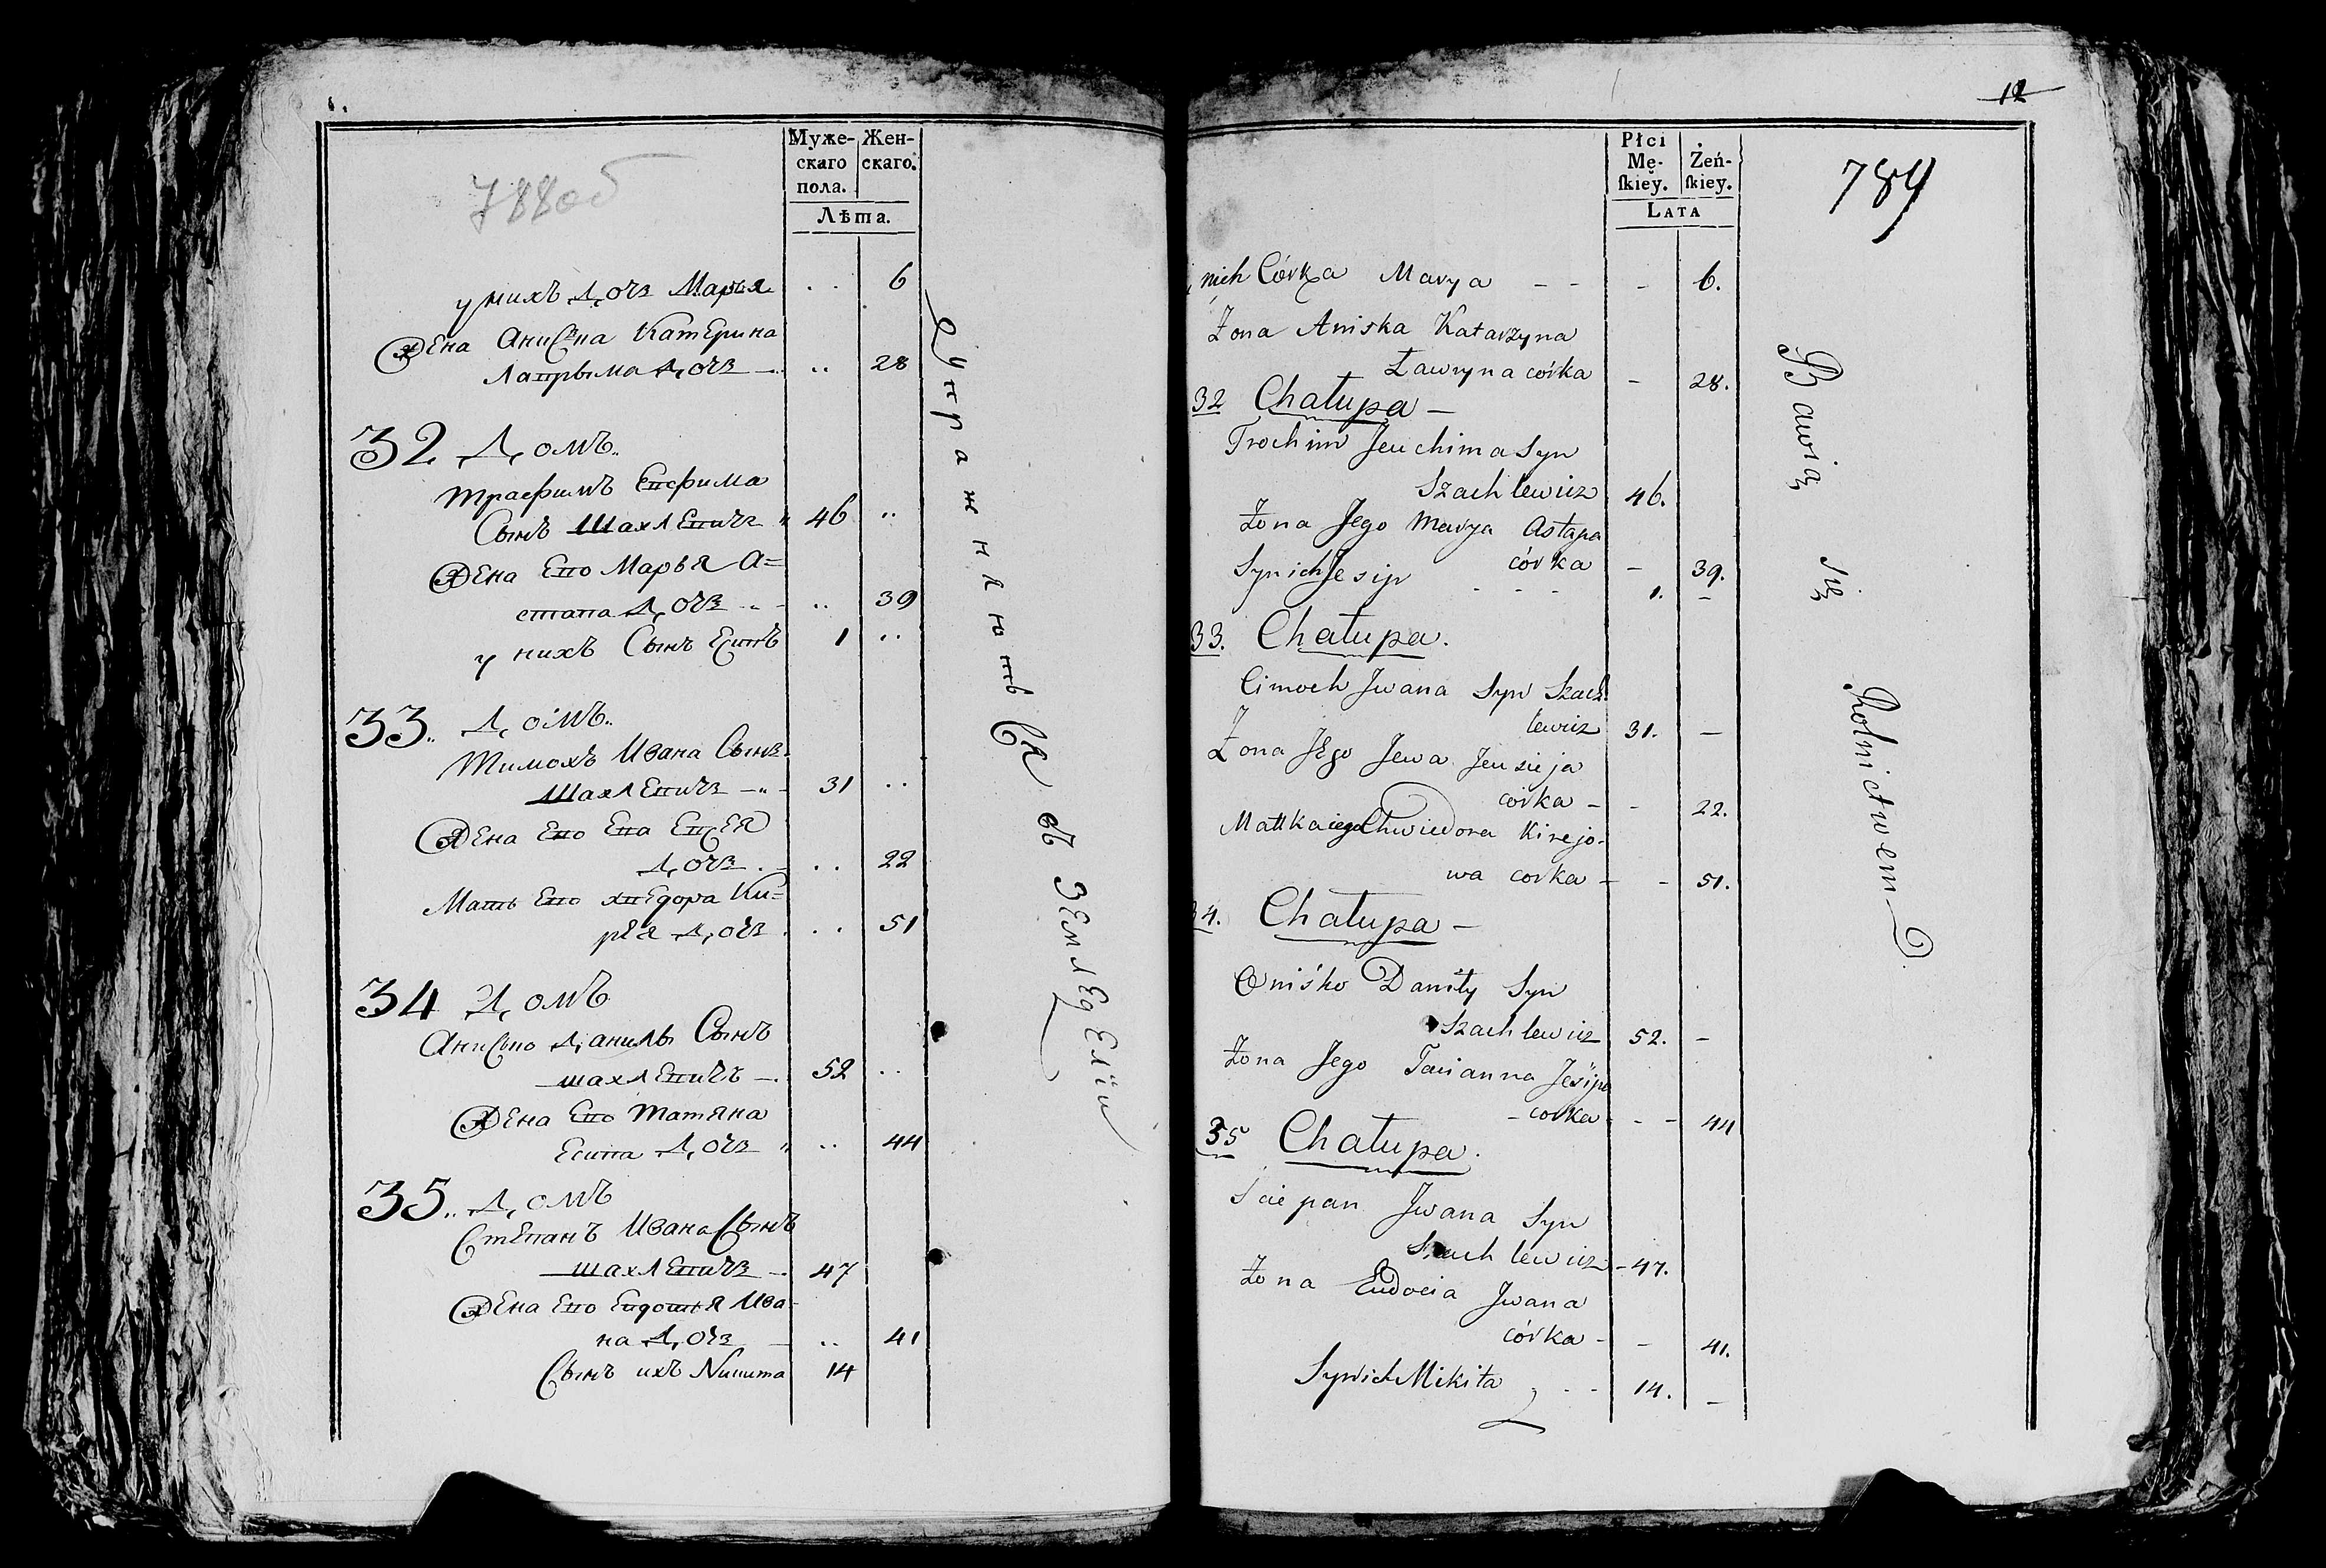 788об
Муже- Жен-
скаго скаго.
пола.
Лѣта.
у нихъ Дочь Марья . . 6
Жена Анисьна Катерина
Лаврыма Дочь .. 28
32 Домъ..
Трасфимъ Евфима
Сынъ Шахлевичъ 46 ..
Жена Ево Марья А=
стапа Дочь .. 39
у нихъ Сынъ Есипъ 1 ..
33.. Домъ..
Тимохъ Ивана Сынъ
Шахлевичъ 31 ..
Жена Ево Ева Евсея
Дочь .. 22
Мать Ево Хведора Ки=
рея Дочь .. 51
34 Домъ
Анисько Данилы Сынъ
Шахлевичъ 52 ..
Жена Ево Татяна
Есипа Дочь .. 44
35.. Домъ
Степанъ Ивана Сынъ
Шахлевичъ 47
Жена Ево Евдотья Ива-
на Дочь .. 41
Сынъ ихъ Никита 14
Упражняются въ Земледелїи
12
Płci
Mę- Żeń-
skiey. skiey.
LATA
784
nich Córka Marya - - - 6.
Żona Aniska Katarzyna
Ławryna córka - 28.
32 Chałupa -
Trochim Jeuchima Syn
Szachlewicz 46.
Żona Jego Marya Astapa
córka - 39.
Syn ich Jesip - - - 1. -
33. Chałupa.
Cimoch Jwana Syn Szach
lewicz 31. -
Żona Jego Jewa Jeusieja
córka - - 22.
Matka iego Chwiedora Kirejo-
wa corka - - 51.
34. Chałupa -
Oniśko Daniły Syn
Szachlewicz 52. -
Żona Jego Tacianna Jesipa
- corka - - 44
35 Chałupa.
Sciepan Jwana Syn
Szachlewicz - 47.
Żona Eudocia Jwana
córka - - 41.
Syn ich Mikita - - 14. -
Bawią się Rolnictwem